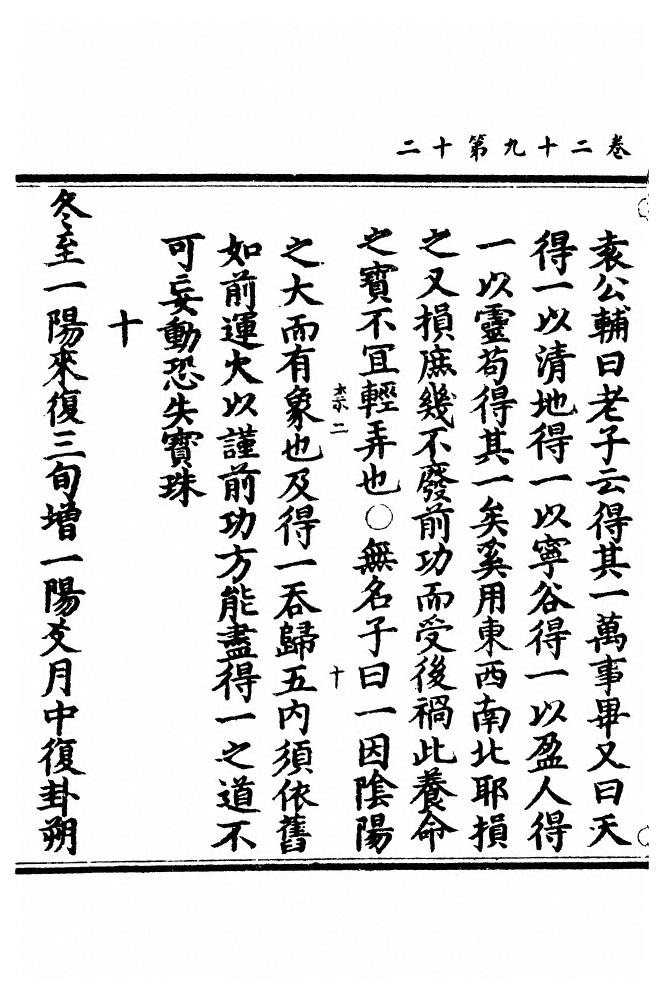 卷二十九第十二
袁公輔曰老子云得其一萬事畢又曰天
得一以清地得一以寧谷得一以盈人得
一以靈苟得其一矣奚用東西南北耶損
之又損庶幾不廢前功而受後禍此養命
之寶不冝輕弄也○無名子曰一因隂陽
柰二
十
之大而有象也及得一吞歸五内須依舊
如前運火以謹前功方能盡得一之道不
可妄動恐失寶珠
十
冬至一陽來復三旬增一陽爻月中復卦朔